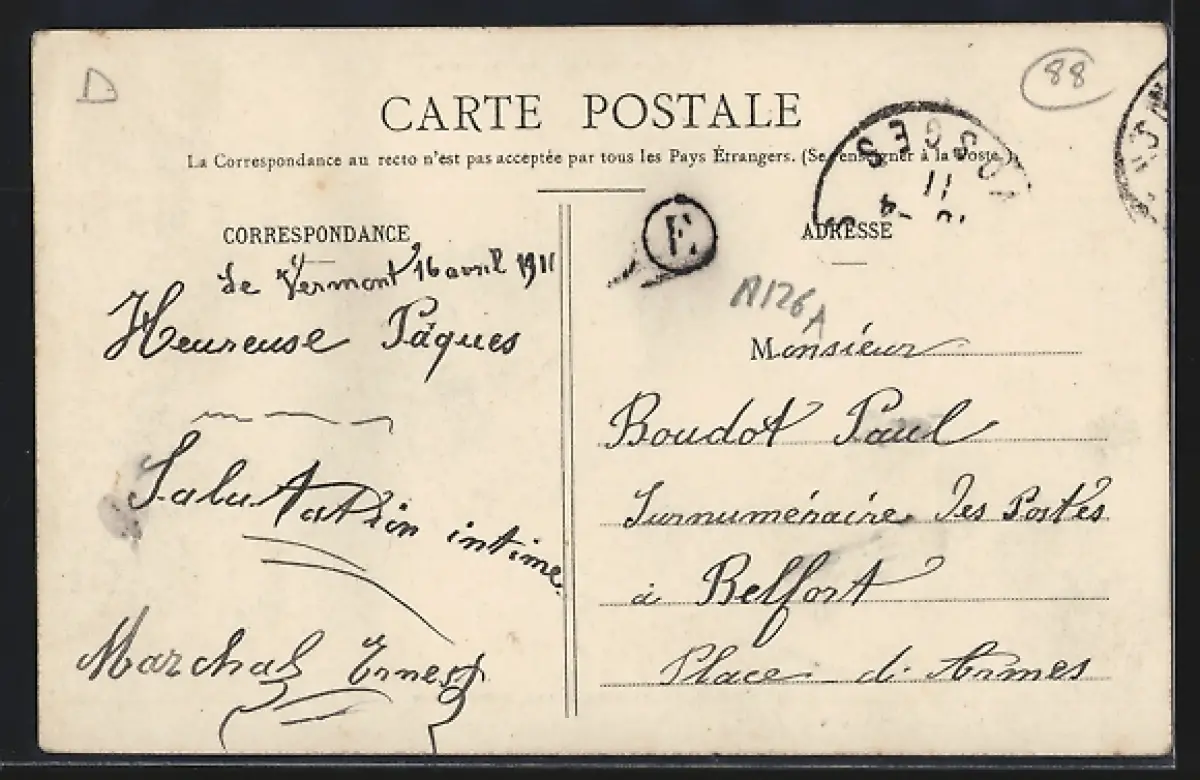 D
88
CARTE POSTALE
La Correspondance au recto n'est pas acceptée par tous les Pays Étrangers. (Se renseigner à la Poste.)
VOSGES
11
-4
E
CORRESPONDANCE
Le Vermont 16 avril 1911
Heureuse Pâques
Salutation intime
Marchal Ernest
ADRESSE
A126A
Monsieur
Boudot Paul
Surnuméraire des Postes
à Belfort
Place d'Armes